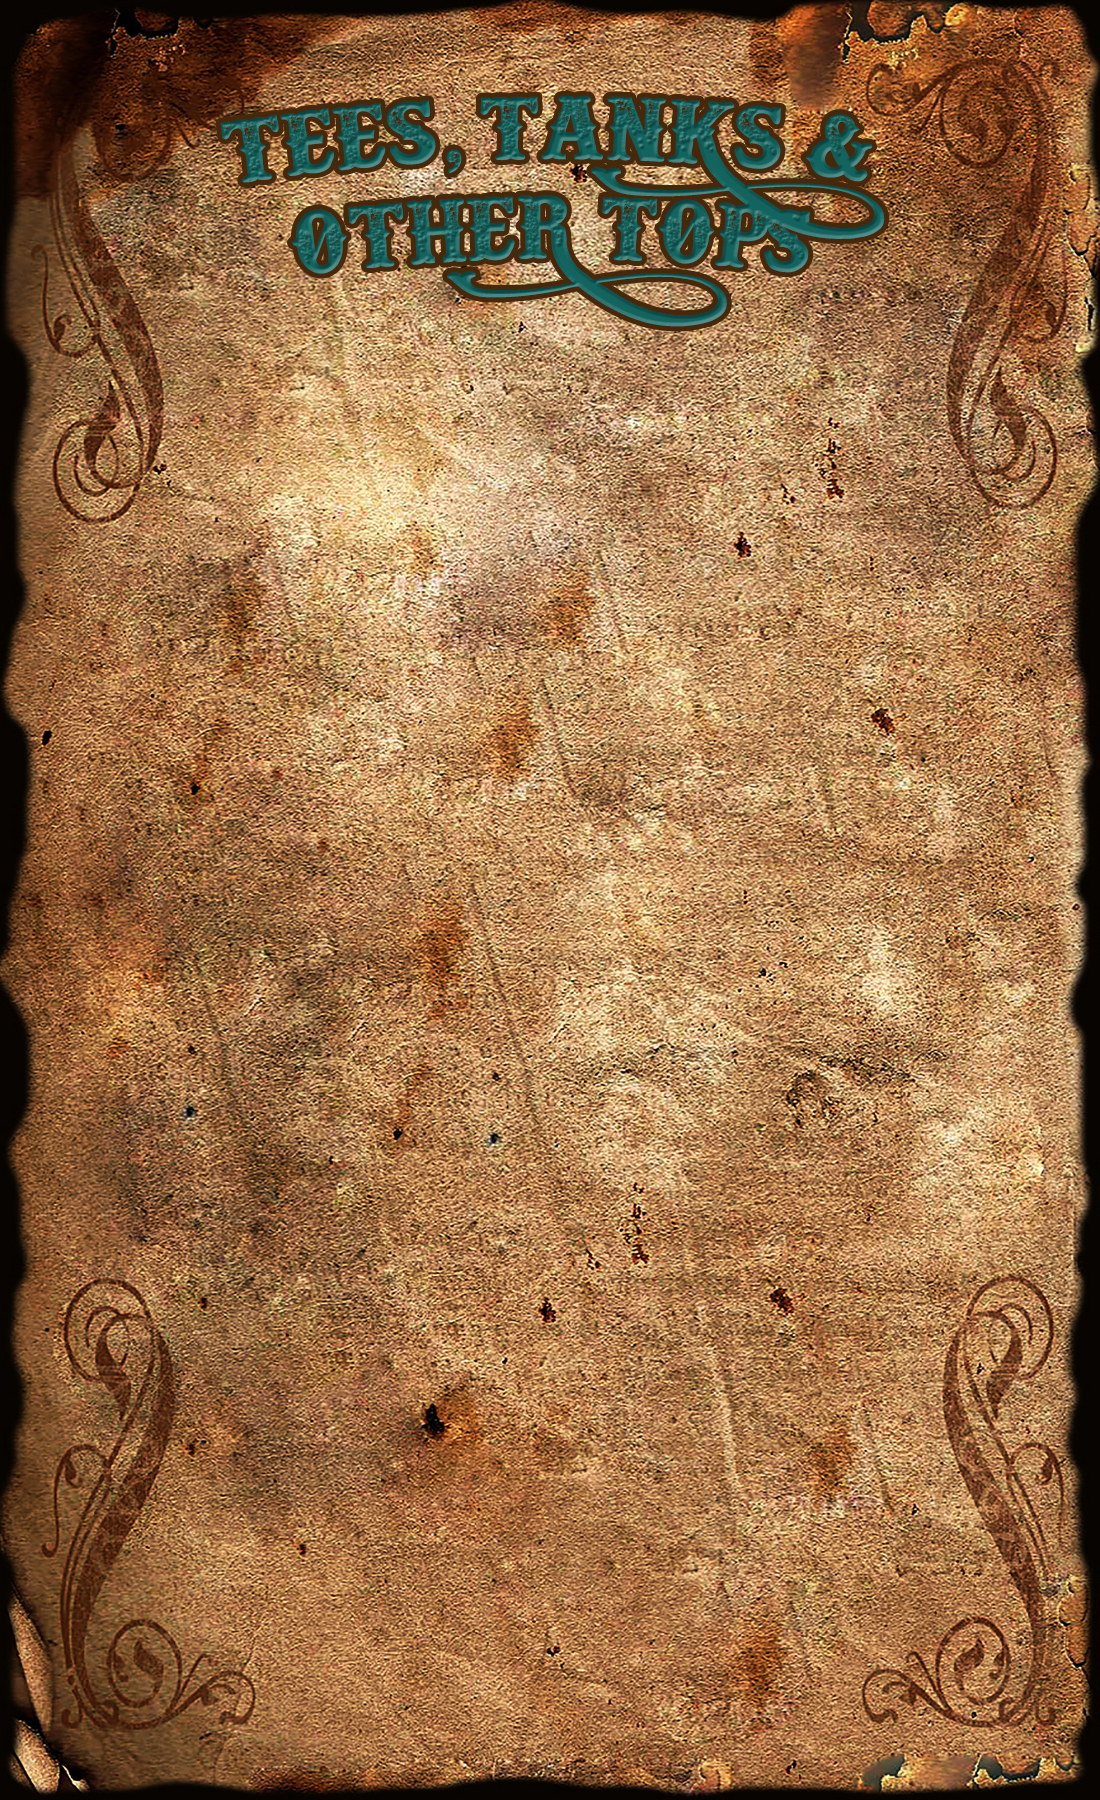 TEES, TANKS &
OTHER TOPS